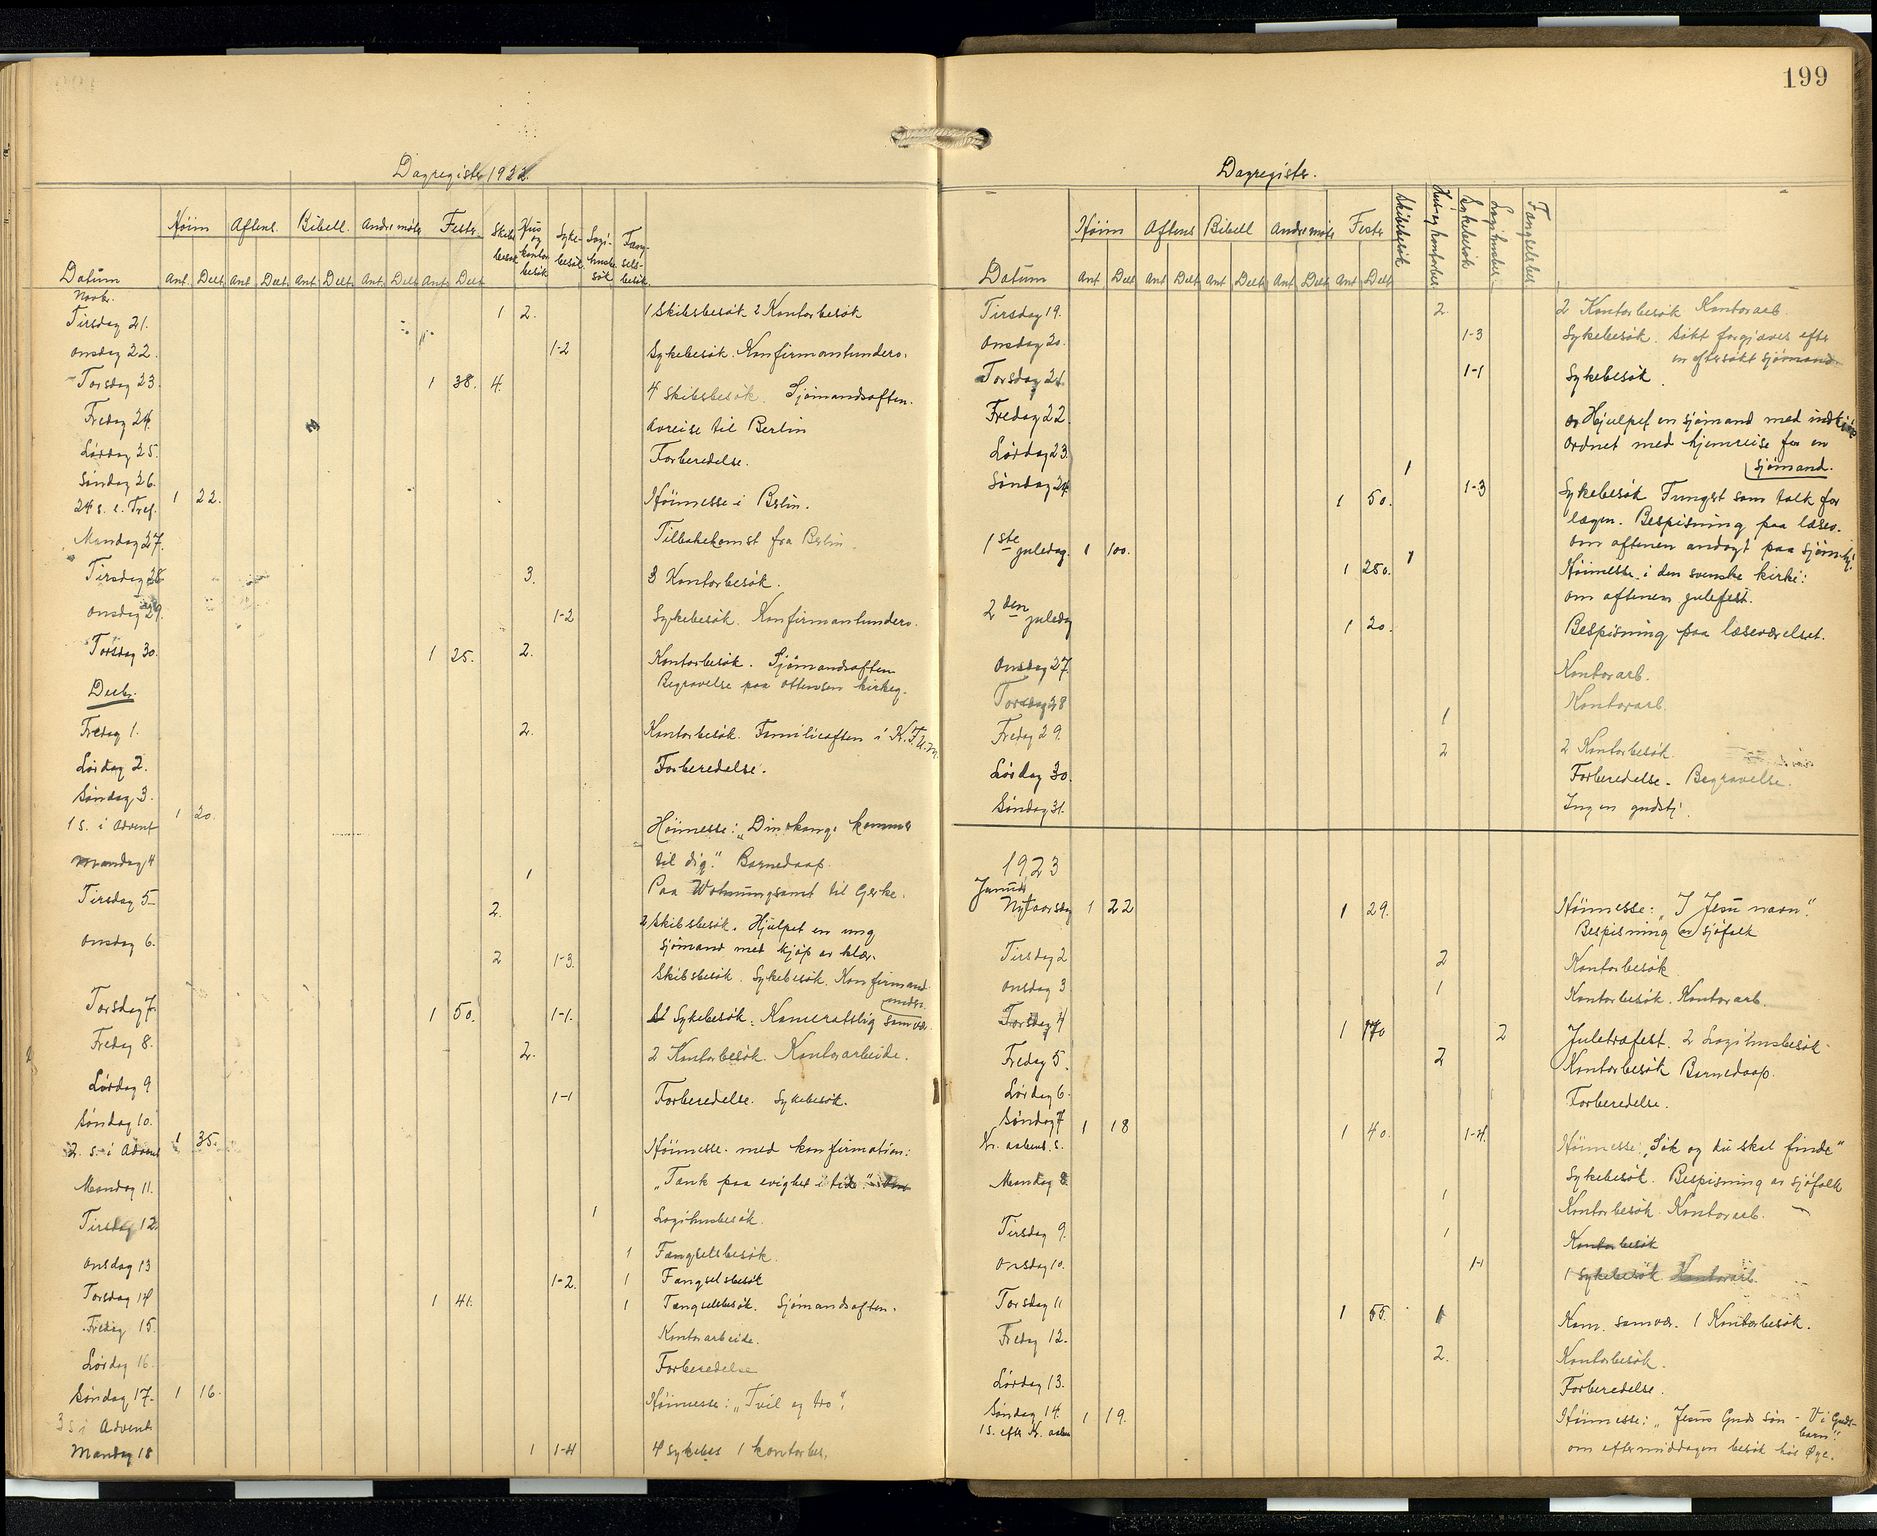 Dagregister 1922.
Høim Aftens. Bibell. Andre møter Fester Skibsbesøk Hus og kontorbesøk Sykebesøk Logihusbesøk Fængselsbesøk
Datum Ant. Delt. Ant. Delt. Ant. Delt. Ant. Delt. Ant. Delt.
Novbr.
Tirsdag 21. 1 2. 1 Skibsbesøk 2 Kontorbesøk
Onsdag 22. 1-2 Sykebesøk. Konfirmantunderv.
Torsdag 23. 1 38. 4. 4 Skibsbesøk. Sjømandsaften.
Fredag 24. Avreise til Berlin
Lørdag 25. Forberedelse.
Søndag 26.
24 s. e. Tref. 1 22. Høimesse i Berlin.
Mandag 27. Tilbakekomst fra Berlin.
Tirsdag 28. 3. 3 Kontorbesøk.
Onsdag 29. 1-2 Sykebesøk. Konfirmantunderv.
Torsdag 30. 1 25. 2. Kontorbesøk. Sjømandsaften
Begravelse paa Ottensen kirkeg.
Decbr.
Fredag 1. 2. Kontorbesøk. Familieaften i K.F.U.M.
Lørdag 2. Forberedelse.
Søndag 3.
1 s. i Advent 1 20. Høimesse: "Din konge kommer
til dig." Barnedaap.
Mandag 4 1 Paa Wohnungsamt til Gerke.
Tirsdag 5 2. 2 Skibsbesøk. Hjulpet en ung
sjømand med kjøp av klær.
Onsdag 6. 2 1-3. Skibsbesøk. Sykebesøk. Konfirmand
underv.
Torsdag 7. 1 50. 1-1. Sykebesøk. Kameratslig samvær.
Fredag 8. 2. 2 Kontorbesøk. Kontorarbeide.
Lørdag 9 1-1 Forberedelse. Sykebesøk.
Søndag 10.
2. s. i Advent 1 35. Høimesse med konfirmation:
"Tænk paa evighet i tide."
Mandag 11. 1 Logihusbesøk.
Tirsdag 12. 1 Fængselsbesøk.
Onsdag 13 1-2. 1 Fængselsbesøk
Torsdag 14 1 41. 1 Fængselsbesøk. Sjømandsaften.
Fredag 15. Kontorarbeide.
Lørdag 16. Forberedelse
Søndag 17. 1 16. Høimesse: "Tvil og tro".
3 s i Advent
Mandag 18 1 1-4 4 sykebes 1 kontorbes.
199
Dagregister.
Høim Aftens Bibell Andre møte Fester Skibsbesøk Hus og kontorbes Sykebesøk Logihusbes Fængselsbes
Datum Ant Delt Ant Delt Ant Delt Ant Delt Ant Delt
Tirsdag 19. 2. 2 Kontorbesøk Kontorarb.
Onsdag 20. 1-3 Sykebesøk. Søkt forgjæves efter
en eftersøkt sjømand
Torsdag 21. 1-1 Sykebesøk.
Fredag 22. Hjulpet en sjømand med indkjøp
Lørdag 23. Ordnet med hjemreise for en
sjømand.
Søndag 24. 1 50. 1 1-3 Sykebesøk Fungert som tolk for
lægen. Bespisning paa læsev.
om aftenen andagt paa sjømhj.
1ste juledag. 1 100. 1 250. 1 Høimesse i den svenske kirke:
om aftenen julefest.
2den juledag 1 20. Bespisning paa læseværelset.
Onsdag 27. Kontorarb.
Torsdag 28 Kontorarb.
Fredag 29. 1
2 2 Kontorbesøk
Lørdag 30. Forberedelse. Begravelse.
Søndag 31. Ingen gudstj.
1923
Januar
Nytaarsdag 1 22 1 29. Høimesse: "I Jesu navn".
Bespisning av sjøfolk
Tirsdag 2 2 Kontorbesøk
Onsdag 3 1 Kontorbesøk. Kontorarb.
Torsdag 4 1 170 2 Juletræfest. 2 Logihusbesøk
Fredag 5. 2 Kontorbesøk Barnedaap.
Lørdag 6. Forberedelse.
Søndag 7 1 18 1 40. 1-4. Høimesse: "Søk og du skal finde"
Kr. aabenb. s. Sykebesøk. Bespisning av sjøfolk
Mandag 8. 1 Kontorbesøk. Kontorarb.
Tirsdag 9. 1 Kontorbesøk
Onsdag 10. 1-1 1 Sykebesøk Kontorarb.
Torsdag 11 1 55. 1 Kam. samvær. 1 Kontorbesøk.
Fredag 12. 2. Kontorbesøk.
Lørdag 13. Forberedelse.
Søndag 14. 1 19. Høimesse: "Jesus Guds søn - Vi Guds-
barn".
1 s. efter Kr. aaben om eftermiddagen besøk hos Øye.